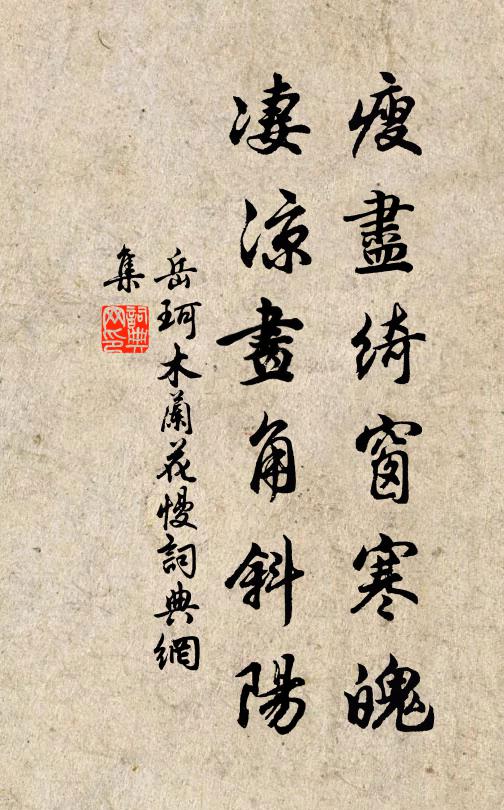 瘦盡綺窗寒魄
淒涼畫角斜陽
岳珂木蘭花慢詞典網
集
詞典
网印